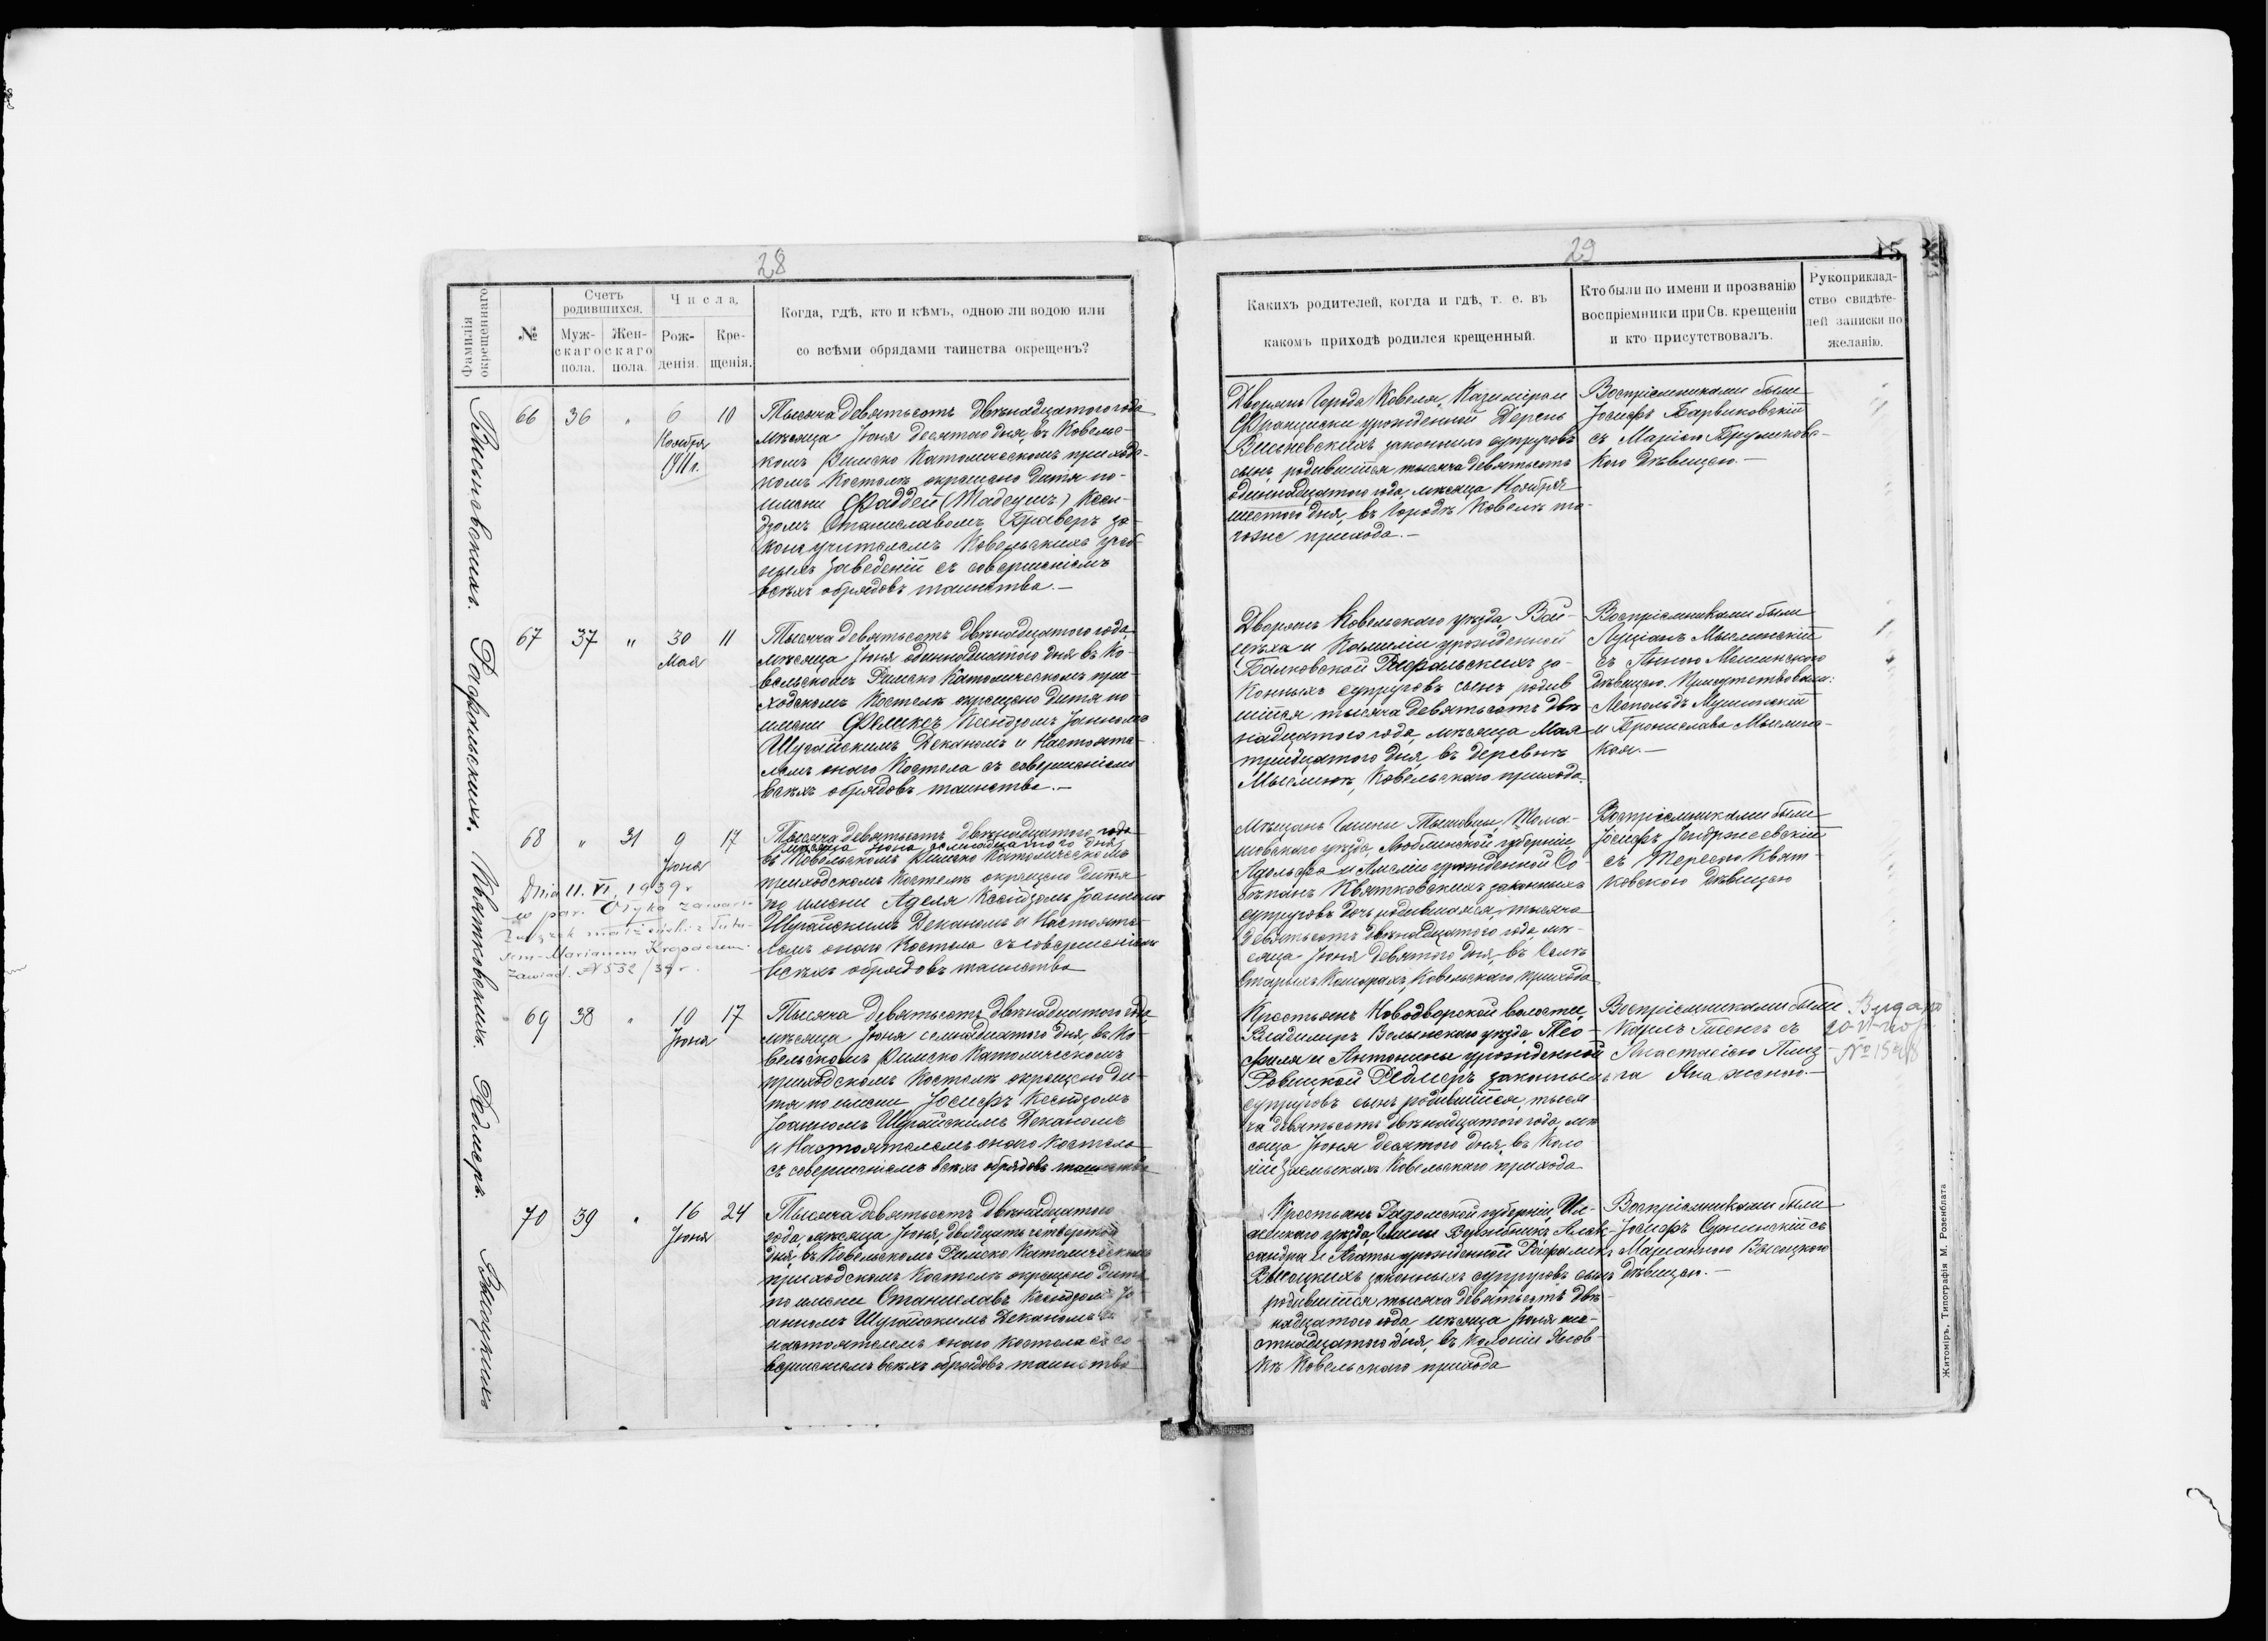 28
Фамилія окрещеннаго
№
Счетъ родившихся.
Муж-скаго пола.
Жен-скаго пола.
Числа,
Рож-денія.
Кре-щенія.
Когда, гдѣ, кто и кѣмъ, одною ли водою или
со всѣми обрядами таинства окрещенъ?
66 36 " 6 10
Ноября
1911 г.
Тысяча девятьсотъ двѣнадцатого года
мѣсяца Іюня десятаго дня, въ Ковельс-
комъ Римско Католическомъ приходс-
комъ Костелѣ окрещено дитя по
имени Фаддей (Тадеушъ) Ксен-
дзомъ Станиславомъ за-
коноучителемъ Ковельскихъ учеб-
ныхъ заведеній съ совершеніемъ
всѣхъ обрядовъ таинства.—
67 37 " 30 11
Мая
Тысяча девятьсотъ двѣнадцатого года,
мѣсяца Іюня одиннадцатого дня въ Ко-
вельскомъ Римско Католическомъ при-
ходскомъ Костелѣ окрещено дитя по
имени Феликсъ Ксендзомъ Іоанномъ
Шугайскимъ Деканомъ и Настояте-
лемъ онаго Костела съ совершеніемъ
всѣхъ обрядовъ таинства.—
68 " 31 9 17
Іюня
Тысяча девятьсотъ двѣнадцатого года
мѣсяца Іюня семнадцатого дня
въ Ковельскомъ Римско Католическомъ
приходскомъ Костелѣ окрещено дитя
по имени Аделя Ксендзомъ Іоанномъ
Шугайскимъ Деканомъ и Настояте-
лемъ онаго Костела съ совершеніемъ
всѣхъ обрядовъ таинства
Dnia 11. VI. 1939 r
w par. Ołyka zawarto
związek małżeński z
Marianem
Zawiad. N 532/39 r.
69 38 " 10 17
Іюня
Тысяча девятьсотъ двѣнадцатого года
мѣсяца Іюня семнадцатого дня, въ Ко-
вельскомъ Римско Католическомъ
приходскомъ Костелѣ окрещено ди-
тя по имени Іосифъ Ксендзомъ
Іоанномъ Шугайскимъ Деканомъ
и Настоятелемъ онаго Костела
съ совершеніемъ всѣхъ обрядовъ таинства
70 39 " 16 24
Іюня
Тысяча девятьсотъ двѣнадцатого
года, мѣсяца Іюня, двадцать четвертого
дня, въ Ковельскомъ Римско Католическомъ
приходскомъ Костелѣ окрещено дитя
по имени Станиславъ Ксендзомъ Іо-
анномъ Шугайскимъ Деканомъ и
настоятелемъ онаго Костела съ со-
вершеніемъ всѣхъ обрядовъ таинства
Рафальскихъ. Квятковскихъ. Редмеръ. Высоцкихъ
29
15
Какихъ родителей, когда и гдѣ, т. е. въ
какомъ приходѣ родился крещенный.
Кто были по имени и прозванію
воспріемники при Св. крещеніи
и кто присутствовалъ.
Рукоприклад-
ство свидѣте-
лей записки по
желанію.
Дворянъ Города Ковеля, Казиміра и
Франциски урожденной
законныхъ супруговъ
сынъ родившійся тысяча девятьсотъ
одиннадцатого года, мѣсяца Ноября
шестого дня, въ Городѣ Ковелѣ то-
гоже прихода.—
Воспріемниками были
Іосифъ Барвиковскій
съ Маріею
кого дѣвицею.—
Дворянъ Ковельскаго уѣзда, Вой-
цѣха и Камиліи урожденной
Рафальскихъ за-
конныхъ супруговъ сынъ родив
шійся тысяча девятьсотъ двѣ
надцатого года, мѣсяца Мая
тридцатого дня, въ деревнѣ
Ковельскаго прихода.
Воспріемниками были
Луціанъ
съ Анною
дѣвицею. Присутствовали:
Леопольдъ
и Бронислава
кая.—
Мѣщанъ Гмины Тышовцы, Тома-
шовскаго уѣзда, Люблинской губерніи,
Адольфа и Амеліи урожденной Со-
Квятковскихъ законныхъ
супруговъ дочь родившаяся, тысяча
девятьсотъ двѣнадцатого года, мѣ-
сяца Іюня девятого дня, въ селѣ
Старыхъ Кошарахъ, Ковельскаго прихода
Воспріемниками были
Іосифъ Іендржеевскій
съ Терезою Квят-
ковскою дѣвицею
Крестьянъ Новодворской волости,
Владимиръ Волынскаго уѣзда, Тео-
филя и Антонины урожденной
Редмеръ законныхъ
супруговъ сынъ родившійся, тыся
ча девятьсотъ двѣнадцатого года, мѣ
сяца Іюня десятого дня, въ Коло
ніи Ковельскаго прихода
Воспріемниками были
Карлъ съ
Анастасіею
га женою.—
20-VI-
Крестьянъ Радомской губерніи, Ил-
жецкаго уѣзда, Гмины Алек-
сандра и Агаты урожденной
Высоцкихъ законныхъ супруговъ сынъ
родившійся тысяча девятьсотъ двѣ-
надцатого года, мѣсяца Іюня ше-
стнадцатого дня, въ Колоніи
Ковельскаго прихода
Воспріемниками были
Іосифъ съ
Маріанною Высоцкою
дѣвицею.—
Житоміръ, Типографія М. Розенблата